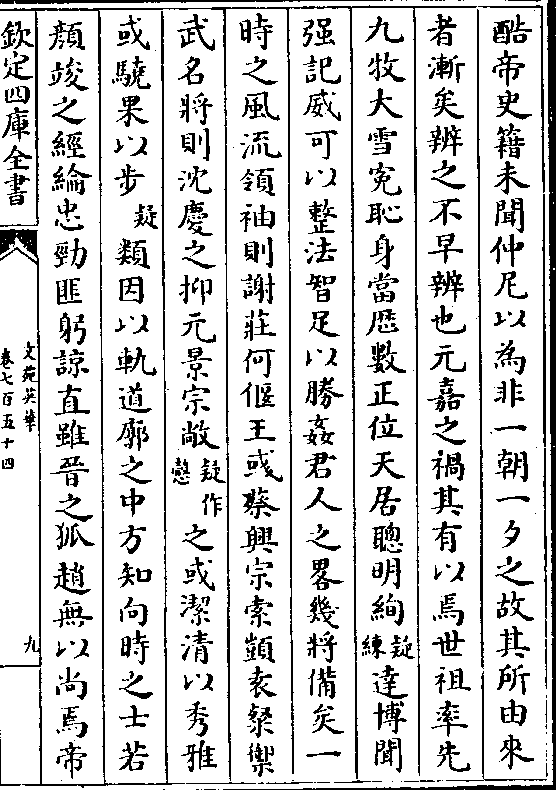 酷帝史籍未聞仲尼以為非一朝一夕之故其所由來
者漸矣辨之不早辨也元嘉之禍其有以焉世祖率先
九牧大雪寃恥身當厯數正位天居聰明絢疑練達博聞
强記威可以整法智足以勝姦君人之畧幾將備矣一
時之風流領袖則謝莊何偃王彧蔡興宗索顗袁粲禦
武名將則沈慶之抑元景宗敞疑作慤之或潔清以秀雅
或驍果以步疑類因以軌道廓之中方知向時之士若
顏竣之經綸忠勁匪躬諒直雖晉之狐趙無以尚焉帝
欽定四庫全書
文苑英華
卷七百五十四
九